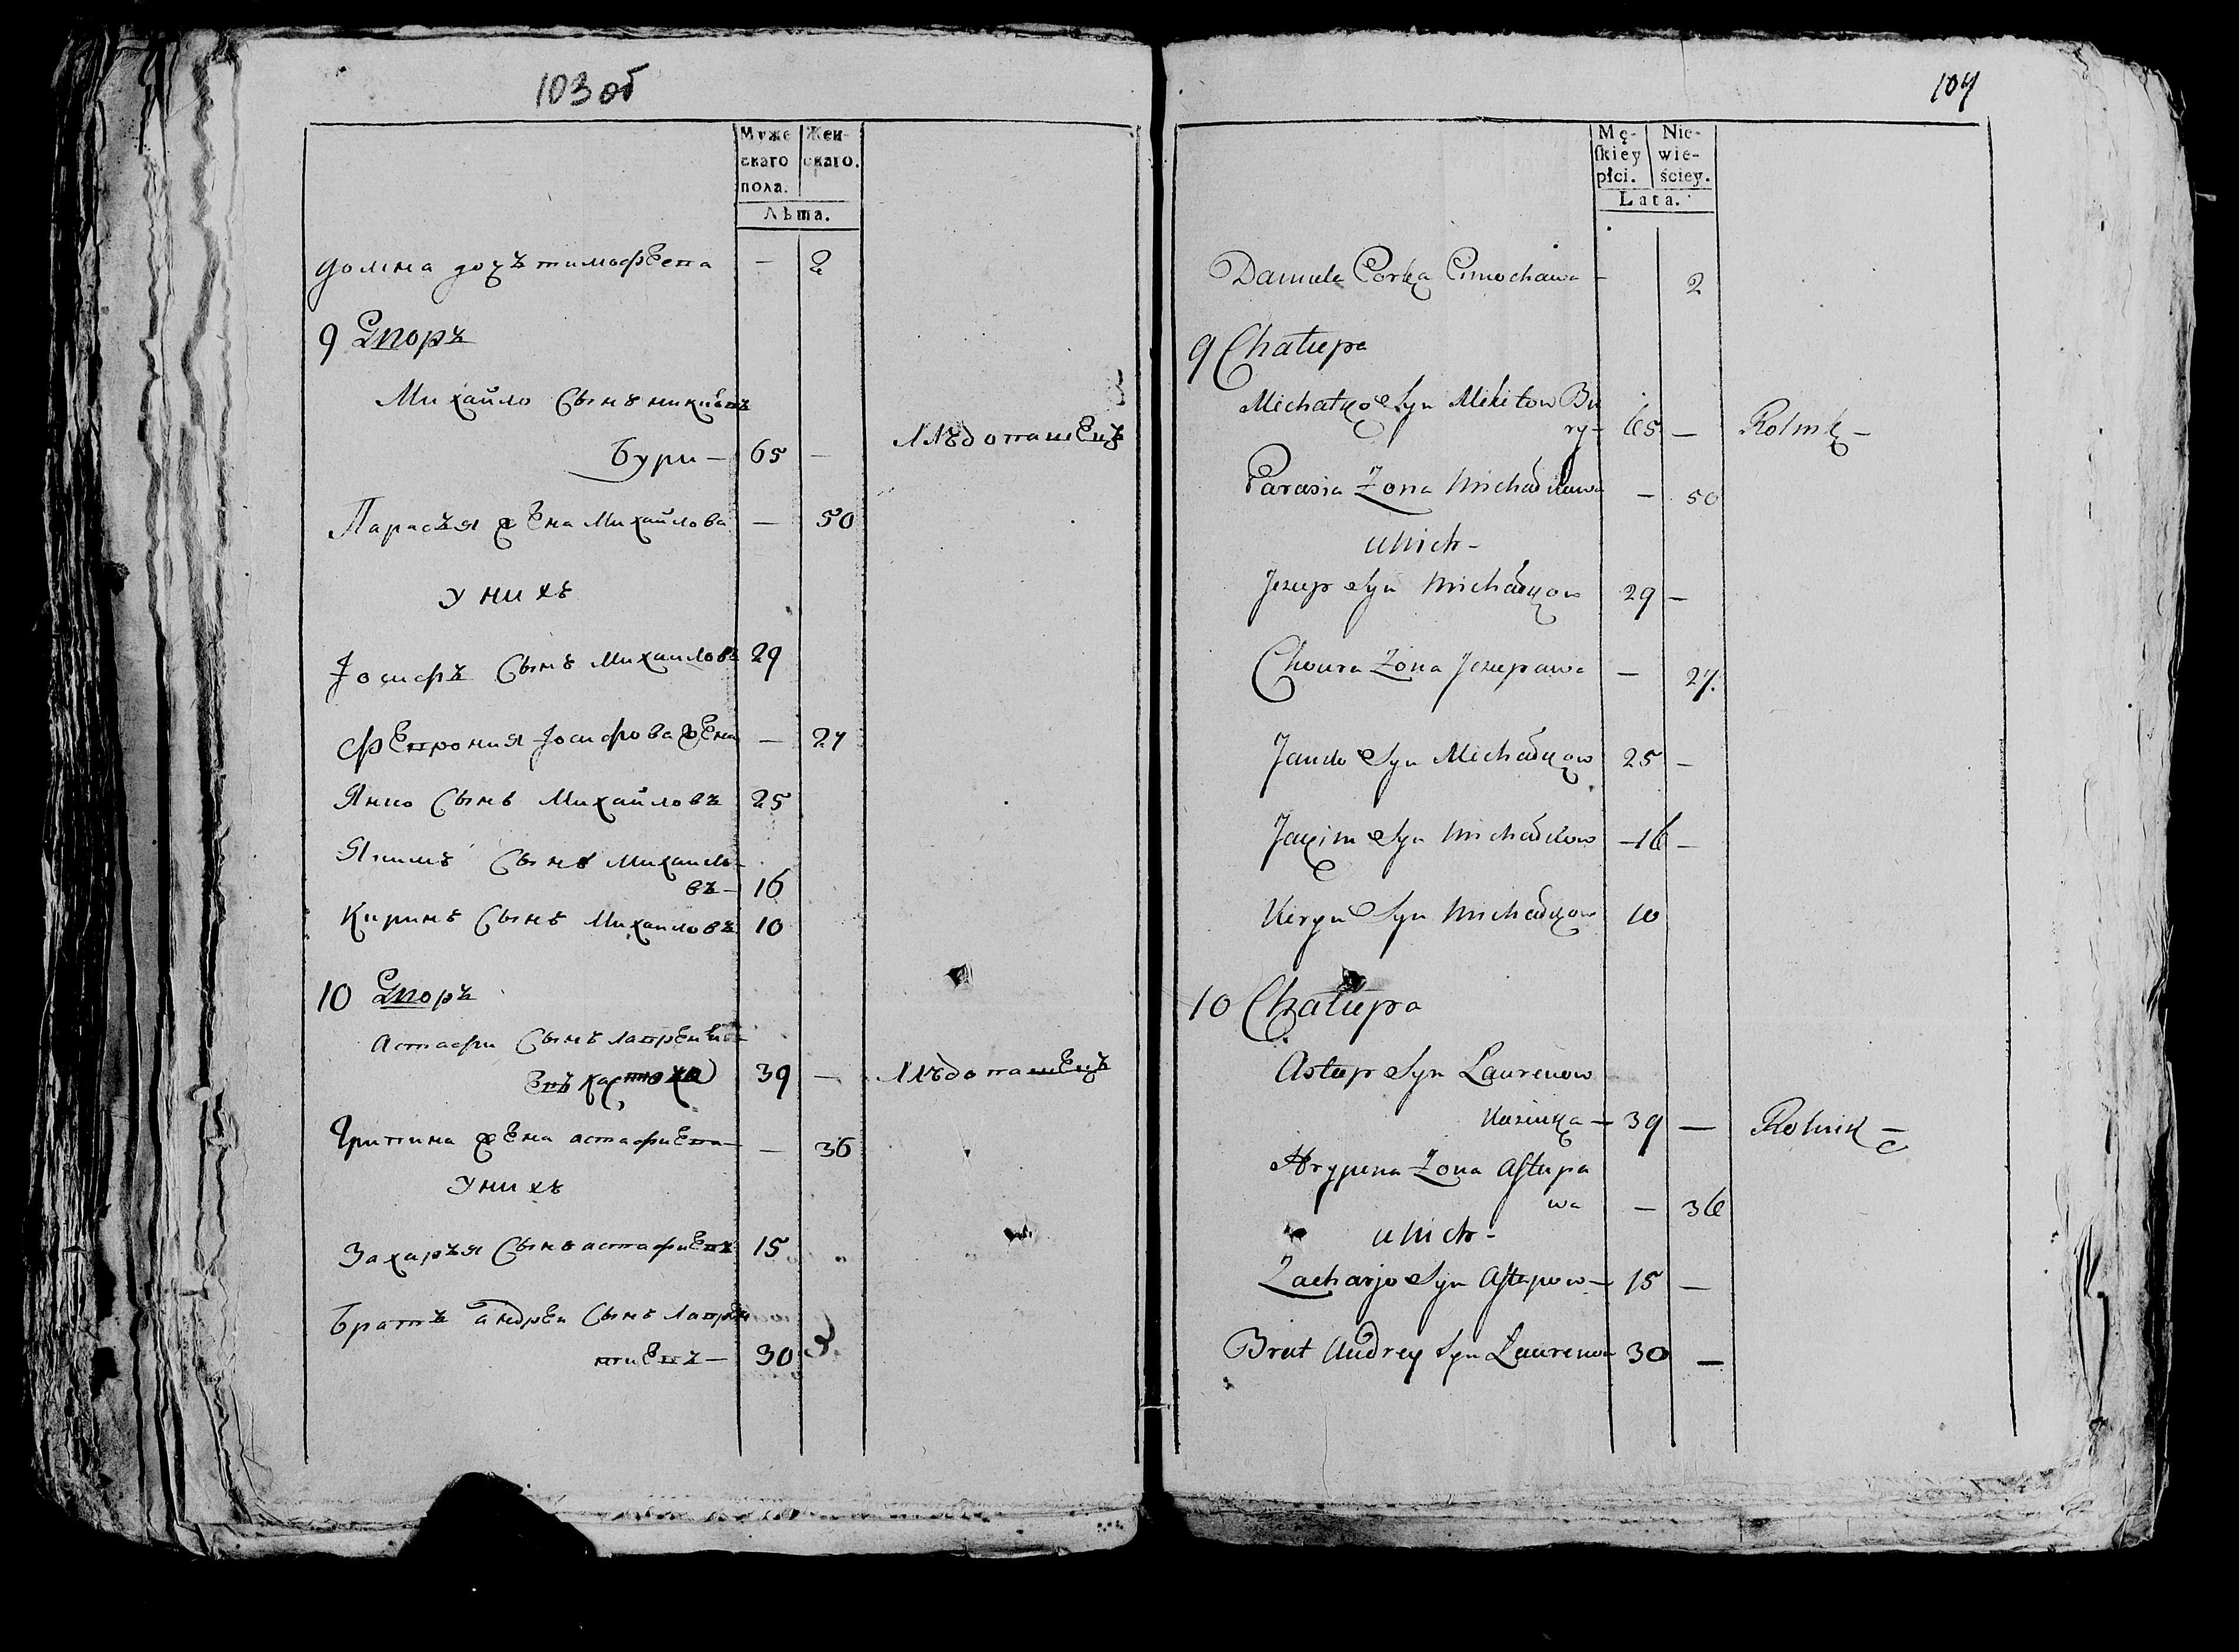 103 об
Муже
скаго
пола.
Жен-
скаго.
Лѣта.
Домна дочъ тимофѣева — 2
9 Дворъ
Михайло Сынъ никитовъ
Бури — 65 — Хлѣбопашецъ
Парасъя жена Михайлова — 50
У нихъ
Іосифъ Сынъ Михайловъ 29
Феврония Іосифова жена — 27
Янко Сынъ Михайловъ 25
Якимъ Сынъ Михайло-
въ — 16
Кирикъ Сынъ Михайловъ 10
10 Дворъ
Астафи Сынъ лаврентi-
евъ 39 — Хлѣбопашецъ
Грипина жена астафиева — 36
У нихъ
Захаръя Сынъ астафиевъ 15
Братъ андреи Сынъ лаврен
тиевъ — 30
104
Mę-
skiey
płci.
Nie-
wie-
ściey.
Lata.
Corka Cimochawa — 2
9 Chałupa
Michałko Syn Mikitow Bu
ry — 65 — Rolnik —
Parasia Zona Michałkowa — 50
u Nich —
Jezup Syn Michałkow 29 —
Choura Zona Jezupawa — 27.
Janko Syn Michałkow 25 —
Jakim Syn Michałkow — 16 —
Kiryk Syn Michałkow 10
10 Chałupa
Astap Syn Laurenow
39 — Rolnik —
Hrypina Zona Astapa
wa — 36
u Nich —
Zacharjo Syn Astapow — 15 —
Brat Andrey Syn Laurenow 30 —